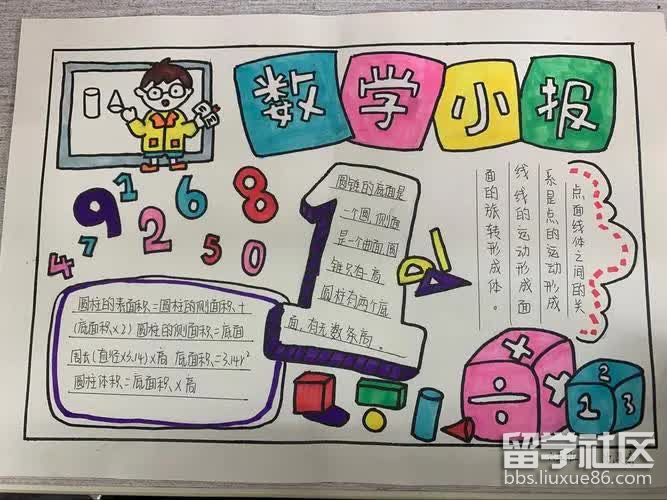 数学小报
1
6
8
9
2
7
4
5
0
圆锥的底面是
一个圆,侧面
是一个曲面,圆
锥只有一高
圆柱有两个底
面,有无数条高。
点面线体之间的关
系是点的运动形成
线线的运动形成面
面的旋转形成体。
圆柱的表面积=圆柱的侧面积+
(底面积x2) 圆柱的侧面积=底面
周长(直径x3.14)x高 底面积=3.14r²
圆柱体积=底面积x高
1
×
×
÷
2
1
3
留学社区
bbs.liuxue86.com